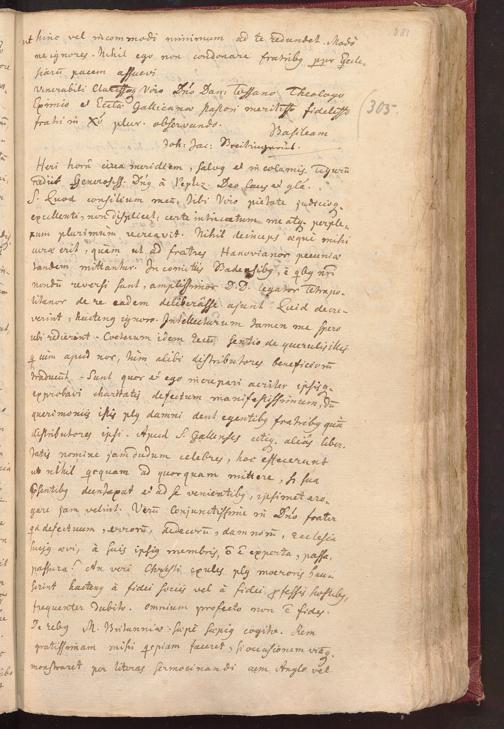 ut hinc vel incommodi minimum ad te redundet. Modo
me ignores. Nihil ego non condonare fratribg ppr Eccle-
siarum pacem assuevi
Venerabili Clariss Viro Dno Dan: Tossano Theologo
Eximio et Eccliae Gallicanae pastori meritiss fidelisso
fratri in Xo plur. observando.
Basileam
Joh: Jac: Breitingerus.
381
305
Heri horâ circa meridiem, salvg et incolumis Tigurũ
rediit Generosiss. Dng à Peplez. Deo laus et gla.
S. Quod consilium meũ, Tibi Viro pietate judiciog
excellenti, non displicet, certe intricatum me atg perple-
xum plurimum recreavit. Nihil deinceps aeque mihi
curae erit, quàm ut ad fratres Hanovianos pecuniae
tandem mittantur. In comitiis Badensibg, è qbg nri
nondũ reversi sunt, amplissimos D.D. legatos Tetrapo-
litanos de re eadem deliberasse ajunt. Quid decre-
verint, hacteng ignoro. Intellecturum tamen me spero
ubi redierint. Coeterum idem tecũ sentio de querulis illis
q vim apud nos, tum alibi distributores beneficiorũ
traducunt. Sunt quos et ego increpari acriter ipsisg
exprobravi charitatis defectum manifestissimum, dũ
querimoniis istis plg damni dent egentibg fratribg quà
distributores ipsi. Apud S. Gallenses civeg, alios liber-
tatis nomine jamdudum celebres, hoc effecerunt
ut nihil qcquam ad quosquam mittere, sed sua
psentibg duntaxat et ad se venientibg, ipsimet ero-
gare jam velint. Verũ conjunctissime in Dno frater
qd defectuum, errorũ, dedecorũ, damnorũ, Ecclesia
hujg aevi, à suis ipsig membris, õ ẽ experta, passa,
passura? An veri Christi exules plg moeroris hau-
serint hacteng à fidei sociis vel à fidei pfessis hostibg,
frequenter dubito. Omnium profecto non ẽ fides.
De rebg M. Britanniae saepe saepig cogito. Rem
gratissimam mihi qspiam faceret, si occasionem viamg
monstraret per literas sermocinandi cum Anglo vel